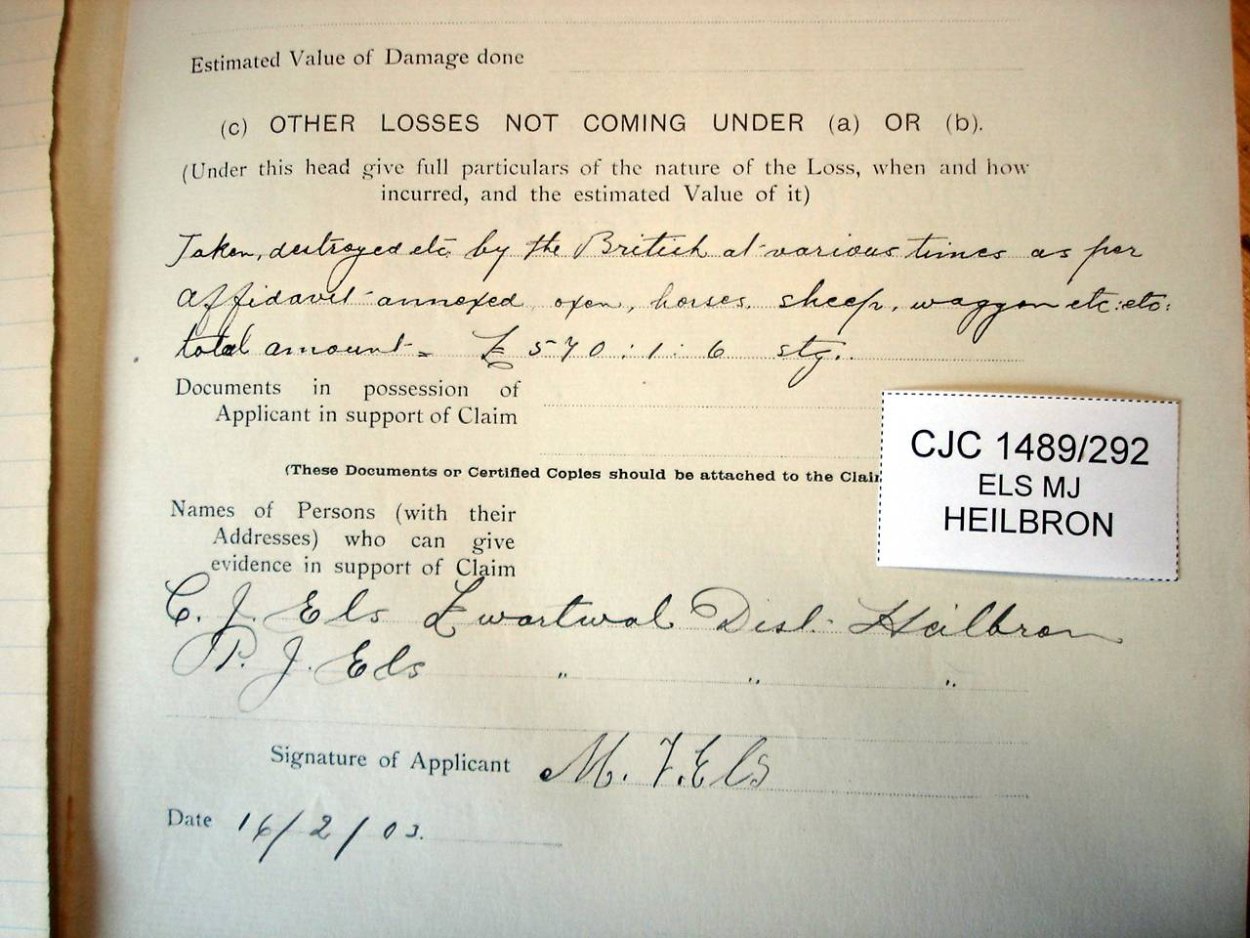 Estimated Value of Damage done
(c) OTHER LOSSES NOT COMING UNDER (a) OR (b).
(Under this head give full particulars of the nature of the Loss, when and how
incurred, and the estimated Value of it)
Taken, destroyed etc by the British at various times as per
affidavit annexed oxen, horses, sheep, waggon etc: etc:
total amount = £ 570 : 1 : 6 stg.
Documents in possession of
Applicant in support of Claim
(These Documents or Certified Copies should be attached to the Clai
CJC 1489/292
ELS MJ
HEILBRON
Names of Persons (with their
Addresses) who can give
evidence in support of Claim
C. J. Els Zwartwal Dist. Heilbron
P. J. Els " " "
Signature of Applicant M. J. Els
Date 16/2/03.